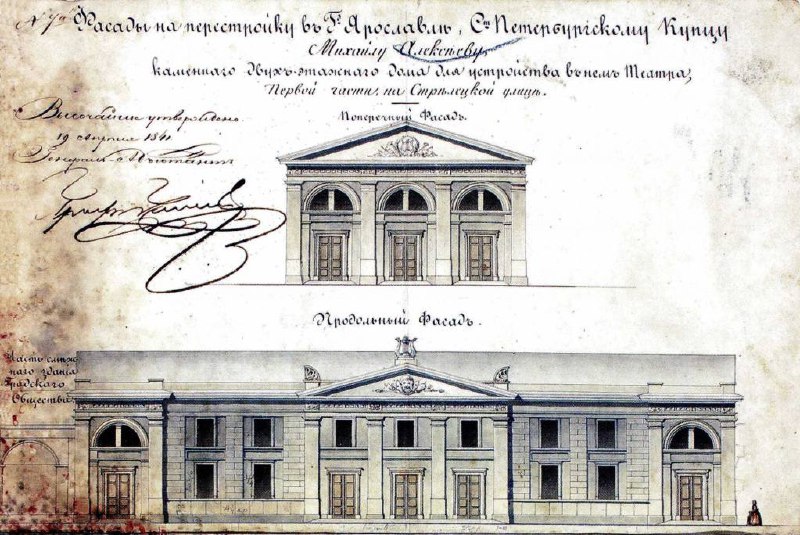 Фасады на перестройку въ Г. Ярославлѣ, Ст. Петербургскому Купцу
Михайлу Алексѣеву,
каменнаго двухъ-этажнаго дома для устройства въ немъ Театра,
Первой части, на Стрѣлецкой улицѣ.
Высочайше утверждено
19 апрѣля 1841
Поперечный Фасадъ.
Продольный Фасадъ.
Часть смѣж
наго зданія
Градскаго
Общества